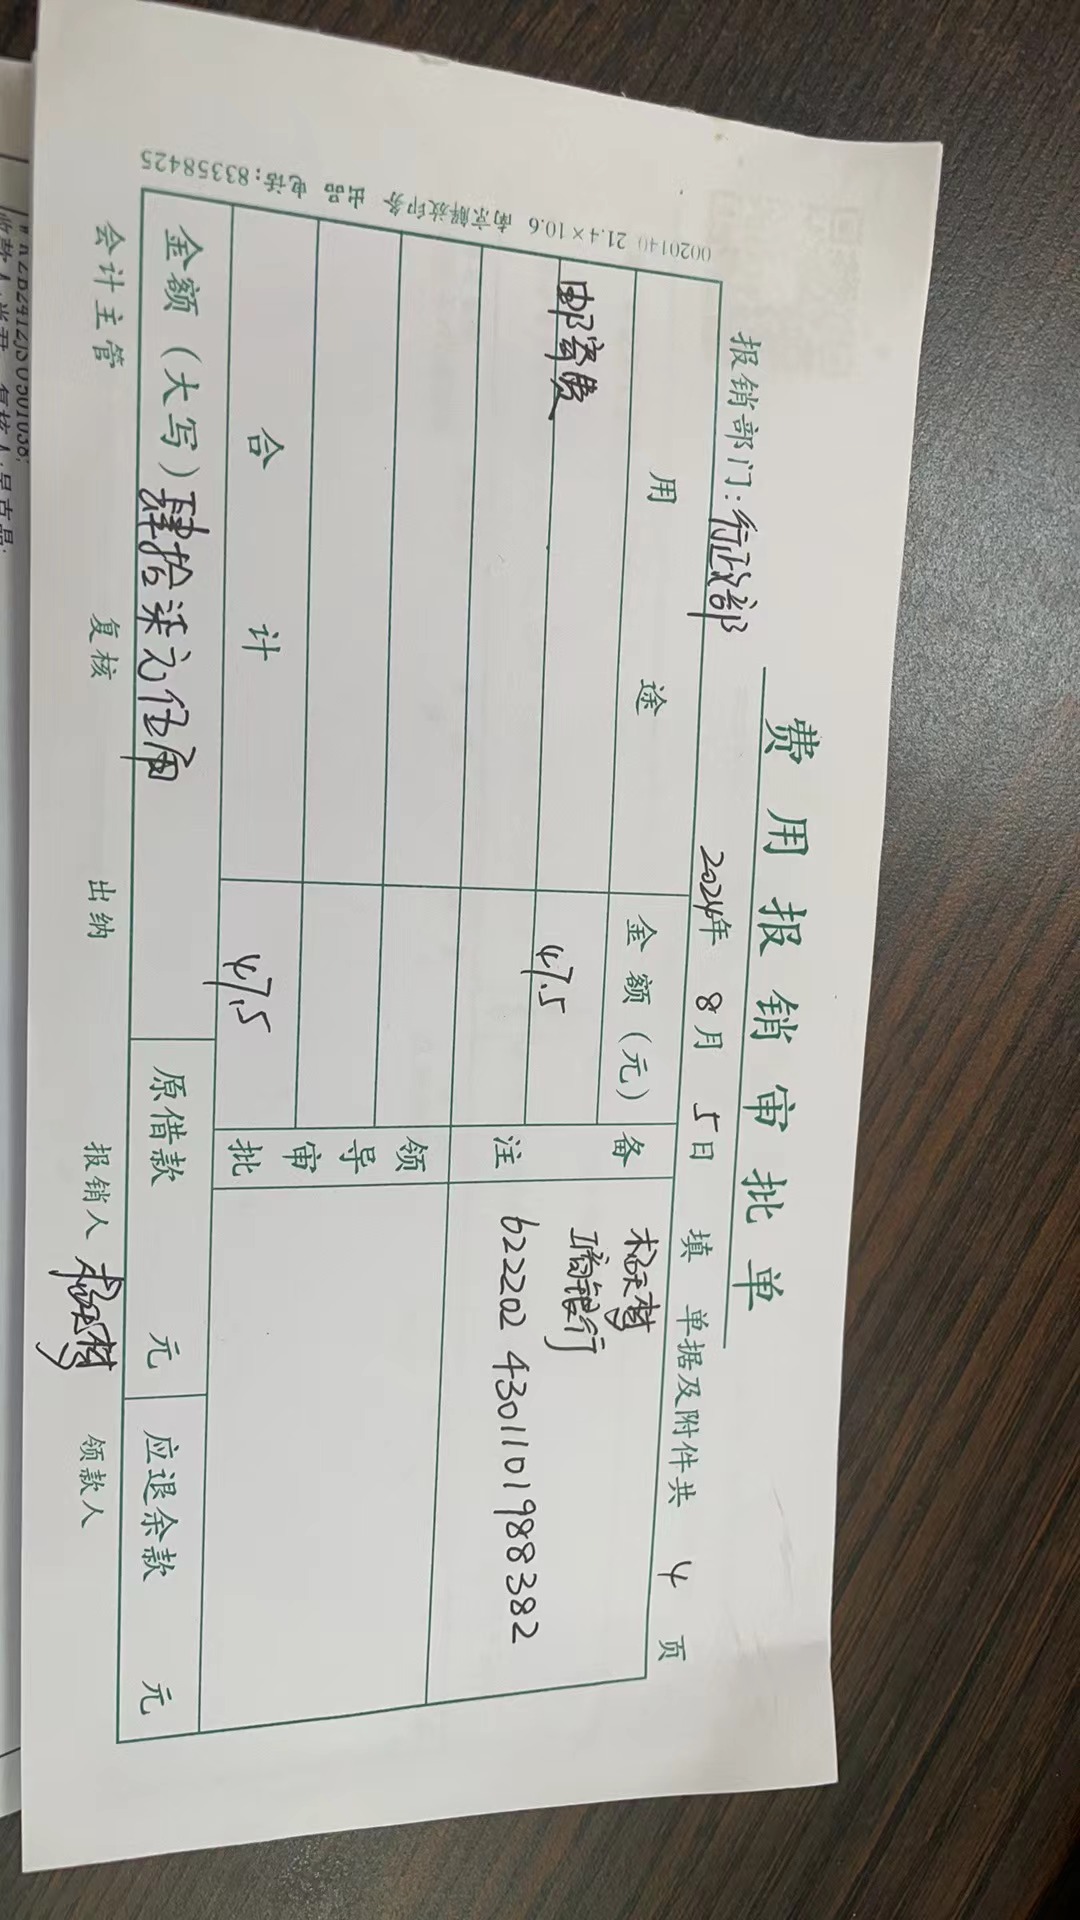 费用报销审批单
报销部门：行政部 2024年 8月 5日 填 单据及附件共 4 页
用途 金额（元） 备注
邮寄费 47.5
工商银行
622202 4301101988382
领导审批
合计 47.5
金额（大写）肆拾柒元伍角 原借款 元 应退余款 元
会计主管 复核 出纳 报销人 领款人
0020140 21.4×10.6 南京解放印务 出品 电话:83358425